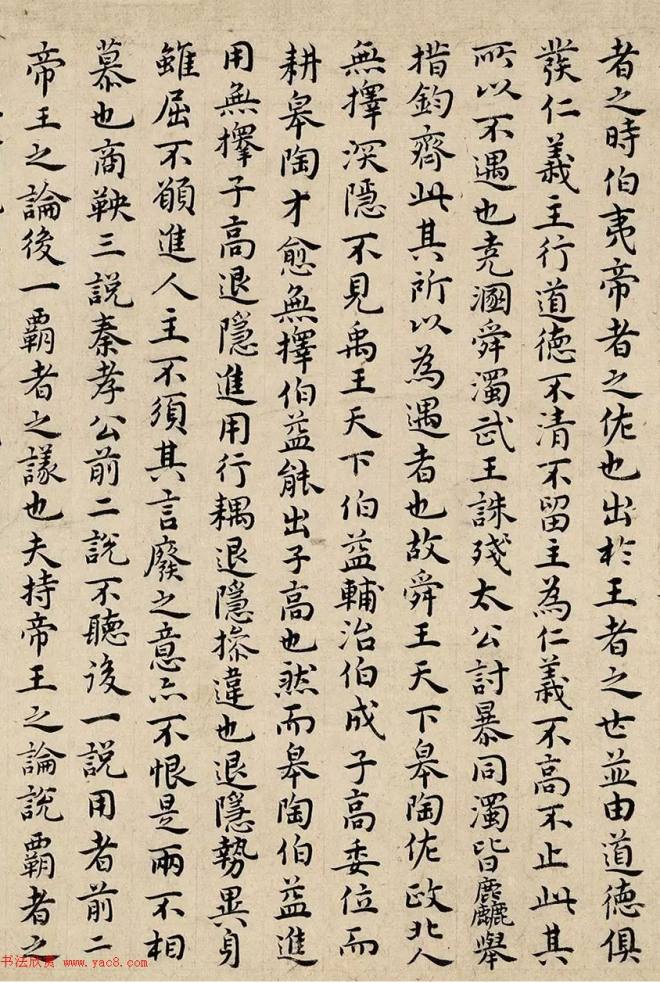 者之時伯夷帝者之佐也出於王者之世並由道德俱
發仁義主行道德不清不留主為仁義不高不止此其
所以不遇也堯溷舜濁武王誅殘太公討暴同濁皆麤舉
措鈞齊此其所以為遇者也故舜王天下皋陶佐政北人
無擇深隱不見禹王天下伯益輔治伯成子高委位而
耕皋陶才愈無擇伯益能出子高也然而皋陶伯益進
用無擇子高退隱進用行耦退隱操違也退隱勢異身
雖屈不願進人主不須其言廢之意亦不恨是兩不相
慕也商鞅三說秦孝公前二說不聽後一說用者前二
帝王之論後一霸者之議也夫持帝王之論說霸者之
书法欣赏 www.yac8.com